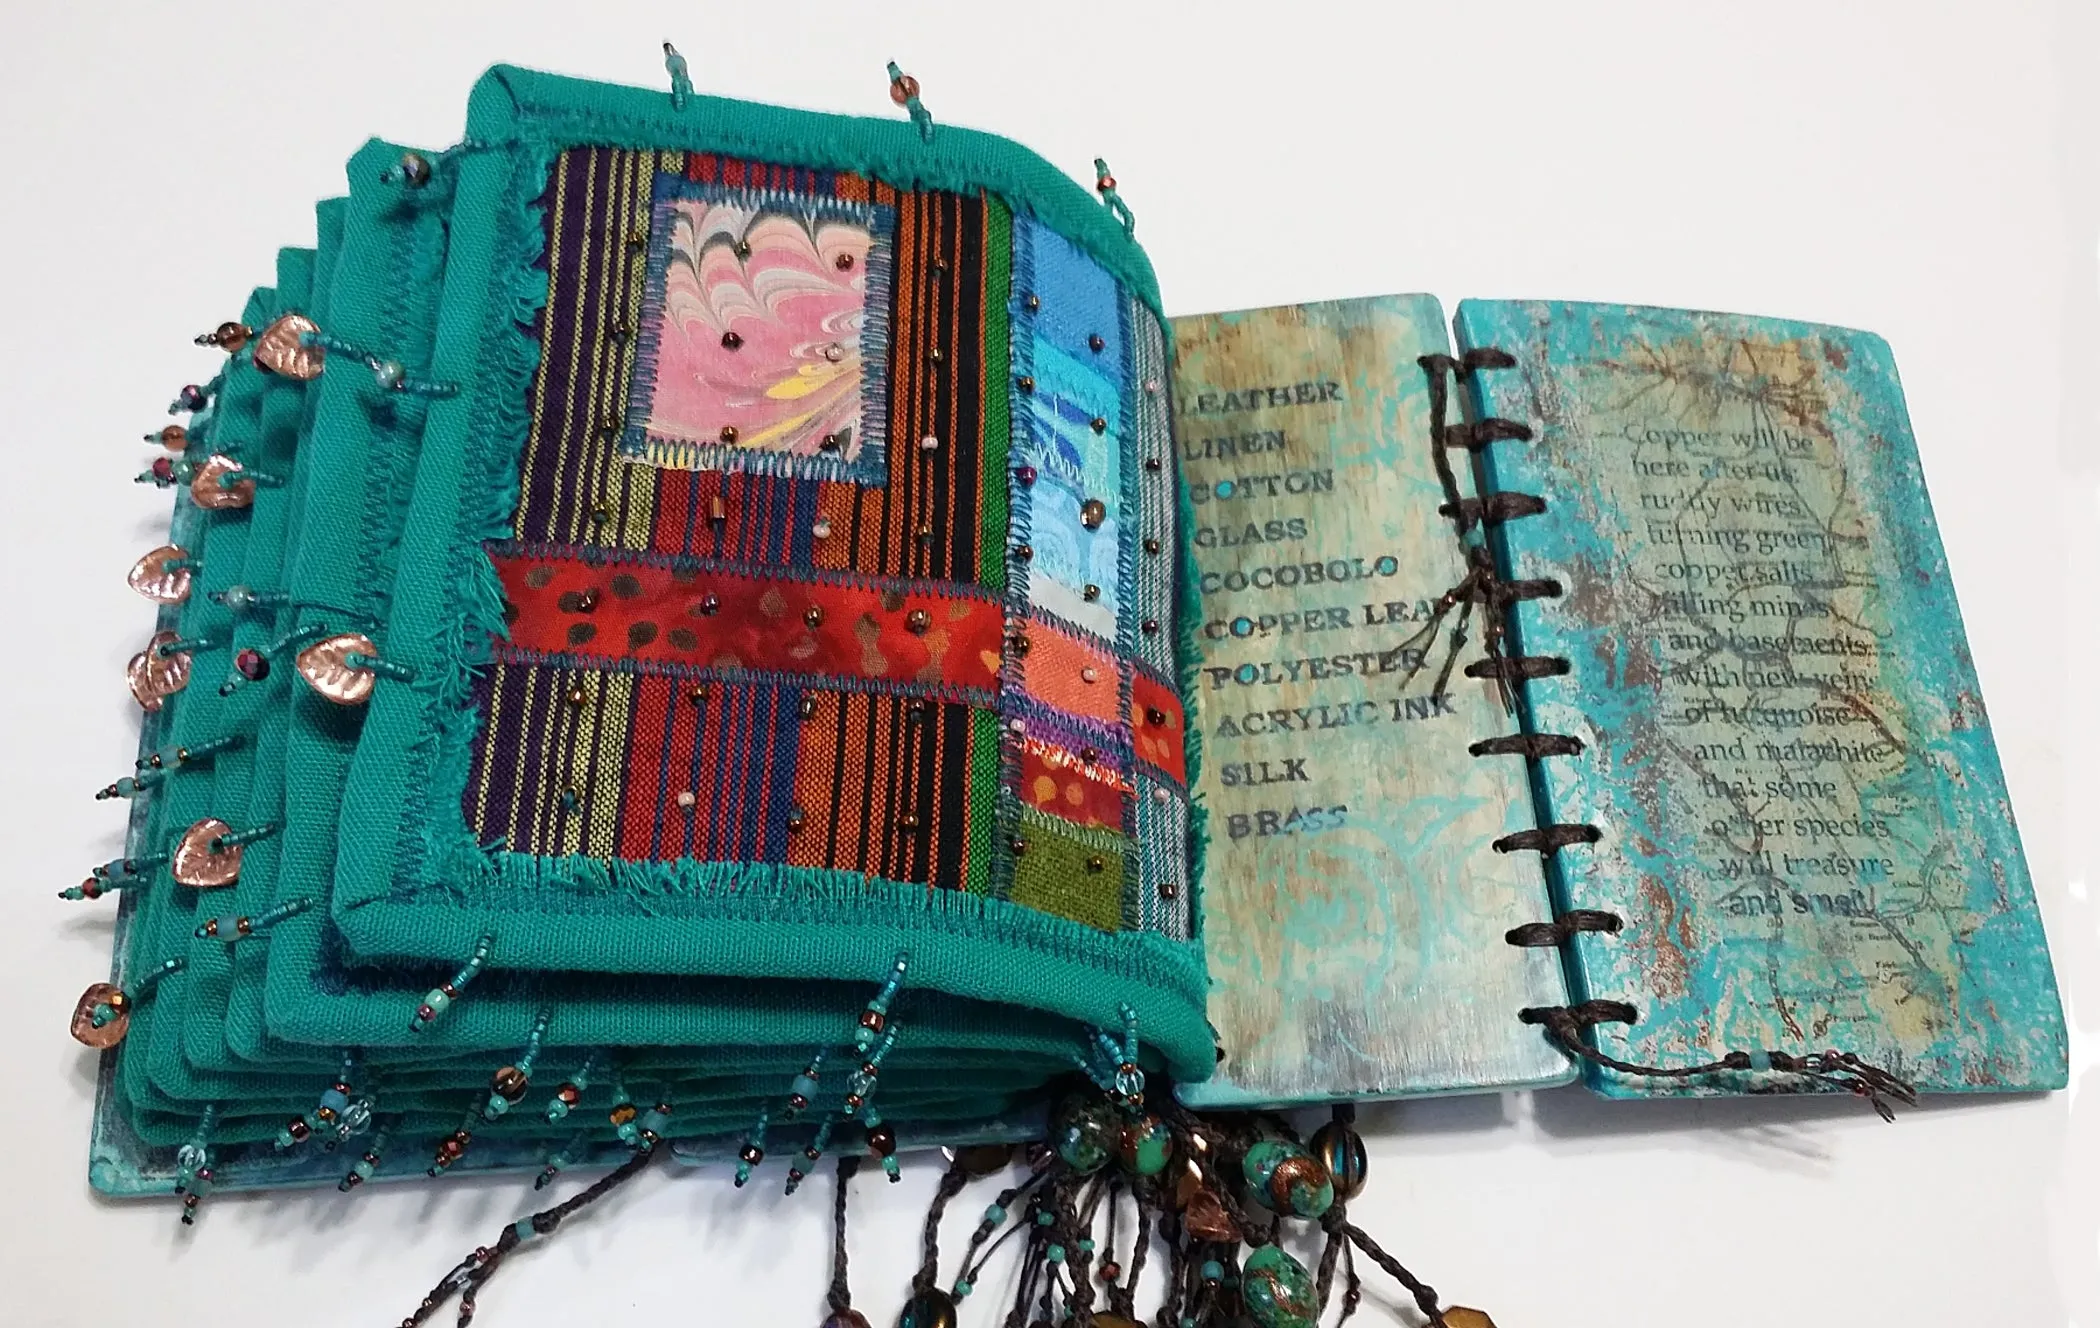 LEATHER
LINEN
COTTON
GLASS
COCOBOLO
COPPER LEA
POLYESTER
ACRYLIC INK
SILK
BRASS
Copper will be
here after us:
ruddy wires
turning green,
copper salts
filling mines
and basements
with new vein
of turquoise
and malachite
that some
other species
will treasure
and smelt